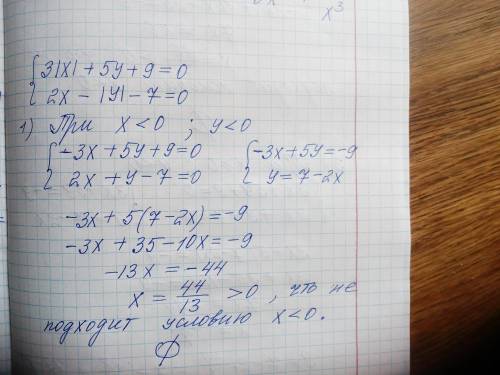 x³
{ 3|x| + 5y + 9 = 0
{ 2x - |y| - 7 = 0
1) При x < 0 ; y < 0
{ -3x + 5y + 9 = 0 { -3x + 5y = -9
{ 2x + y - 7 = 0 { y = 7 - 2x
-3x + 5(7 - 2x) = -9
-3x + 35 - 10x = -9
-13x = -44
x = 44/13 > 0 , что не
подходит условию x < 0.
∅